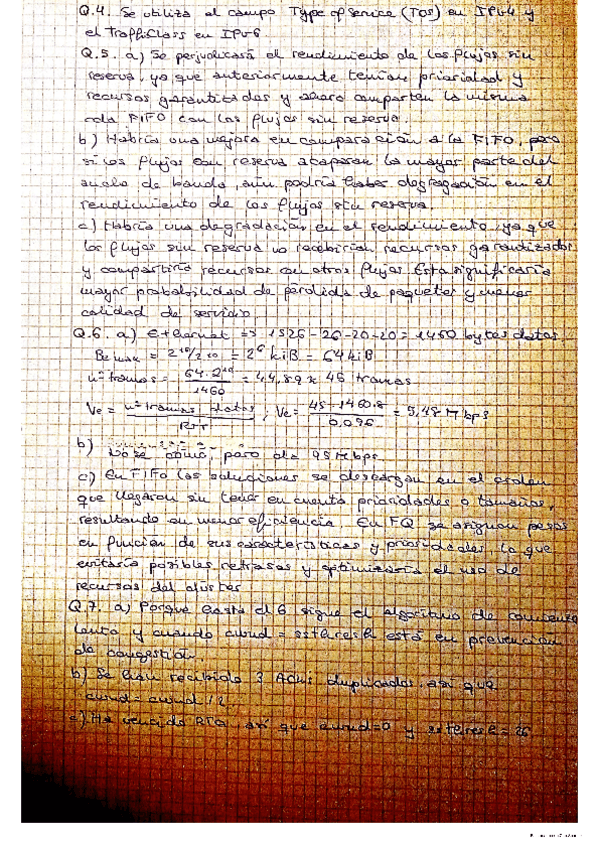 Q.4. Se utiliza el campo Type of Service (TOS) en IPv4 y
el TrafficClass en IPv6.
Q.5. a) Se perjudicará el rendimiento de los flujos sin
reserva, ya que anteriormente tenían prioridad y
recursos garantizados y ahora comparten la misma
cola FIFO con los flujos sin reserva.
b) Habría una mejora en comparación a la FIFO, pero
si los flujos con reserva acaparan la mayor parte del
ancho de banda, aún podría haber degradación en el
rendimiento de los flujos sin reserva.
c) Habría una degradación en el rendimiento ya que
los flujos sin reserva no recibirían recursos garantizados
y compartiría recursos con otros flujos. Esta significaría
mayor probabilidad de pérdida de paquetes y menor
calidad de servicio.
Q.6. a) Ethernet => 1526-26-20-20=1460 bytes datos.
= 2^16/2^10 = 2^6 kiB = 64 kiB
nº tramas = 64·2^10/1460 = 44,89 ≈ 45 tramas
Ve = nº tramas datos/RTT ; Ve = 45·1460·8/0,096 = 5,48 Mbps
b) No se cómo, pero da 95 Mbps.
c) En FIFO las soluciones se descargan en el orden
que llegaron sin tener en cuenta prioridades o tamaños,
resultando en menor eficiencia. En FQ se asignan pesos
en función de sus características y prioridades, lo que
evitaría posibles retrasos y optimizaría el uso de
recursos del
Q.7. a) Porque hasta el 6 sigue el algoritmo de comienzo
lento y cuando cwnd = está en prevención
de congestión.
b) Se han recibido 3 Acks duplicados, así que
cwnd = cwnd/2
c) Ha vencido RTO, así que cwnd=0 y = 26